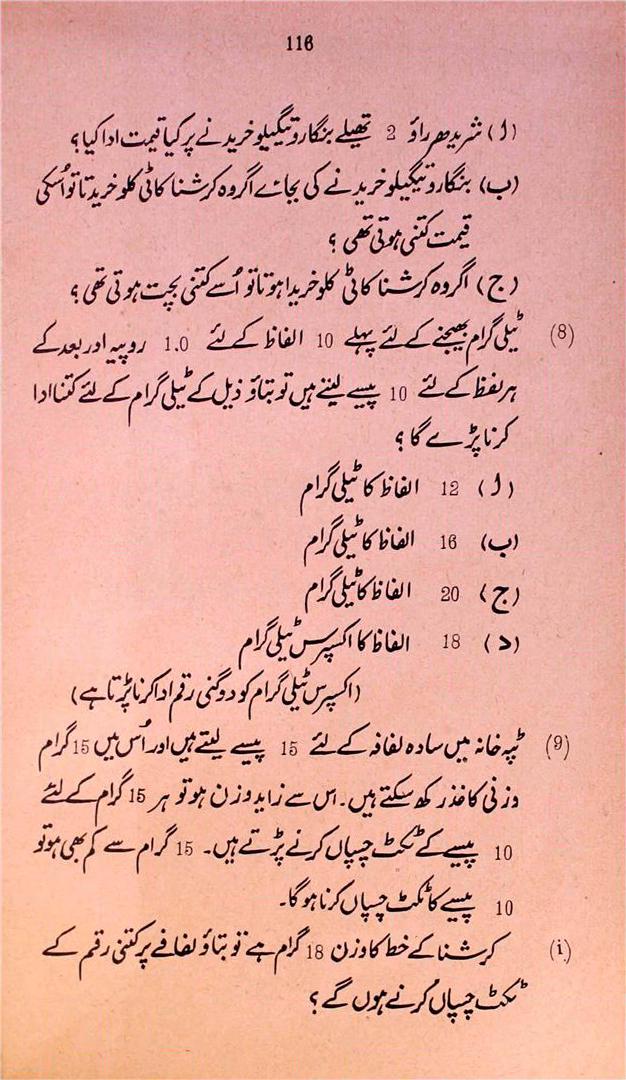 116
(ا) شریدھر راؤ 2 تھیلے بنگارو تیگیلو خریدنے پر کیا قیمت ادا کیا؟
(ب) بنگارو تیگیلو خریدنے کی بجائے اگر وہ کرشنا کاٹی کلو خریدتا تو اُسکی
قیمت کتنی ہوتی تھی ؟
(ج) اگر وہ کرشنا کاٹی کلو خریدا ہوتا تو اُسے کتنی بچت ہوتی تھی ؟
(8) ٹیلی گرام بھیجنے کے لئے پہلے 10 الفاظ کے لئے 1.0 روپیہ اور بعد کے
ہر لفظ کے لئے 10 پیسے لیتے ہیں تو بتاؤ ذیل کے ٹیلی گرام کے لئے کتنا ادا
کرنا پڑے گا ؟
(ا) 12 الفاظ کا ٹیلی گرام
(ب) 16 الفاظ کا ٹیلی گرام
(ج) 20 الفاظ کا ٹیلی گرام
(د) 18 الفاظ کا اکسپرس ٹیلی گرام
(اکسپرس ٹیلی گرام کو دوگنی رقم ادا کرنا پڑتا ہے)
(9) ٹپہ خانہ میں سادہ لفافہ کے لئے 15 پیسے لیتے ہیں اور اُس میں 15 گرام
وزنی کاغذ رکھ سکتے ہیں۔ اس سے زاید وزن ہو تو ہر 15 گرام کے لئے
10 پیسے کے ٹکٹ چسپاں کرنے پڑتے ہیں۔ 15 گرام سے کم بھی ہو تو
10 پیسے کا ٹکٹ چسپاں کرنا ہو گا۔
(i) کرشنا کے خط کا وزن 18 گرام ہے تو بتاؤ لفافے پر کتنی رقم کے
ٹکٹ چسپاں کرنے ہوں گے ؟